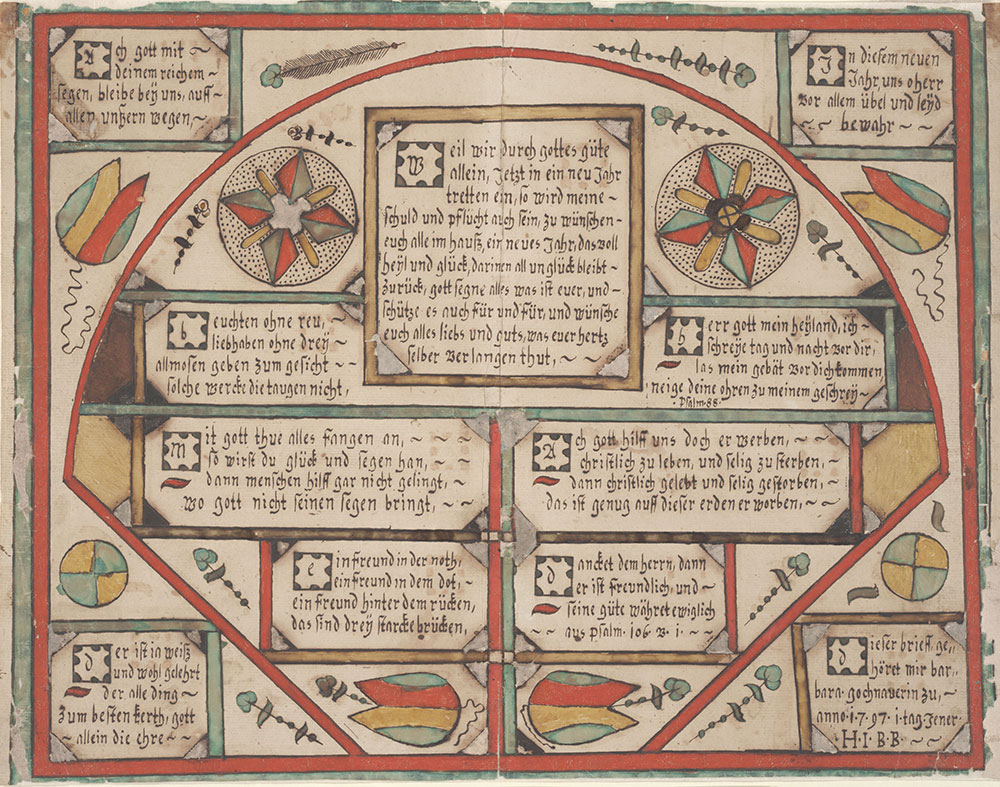 Ach gott mit ~
deinem reichem ~
segen, bleibe bey uns, auff
allen unßern wegen, ~
In diesem neuen
Jahr, uns o herr
vor allem übel und leyd
~ ~ bewahr ~ ~
Weil wir durch gottes güte
allein, Jetzt in ein neu Jahr
tretten ein, so wird meine ~
schuld und pflücht auch sein, zu wünschen ~
euch alle im hauß, ein neües Jahr, das voll
heyl und glück, darinen all unglück bleibt ~
zurück, gott segne alles was ist euer, und ~
schütze es auch für und für, und wünsche
euch alles liebs und guts, was euer hertz
selber verlangen thut, ~ ~
beuchten ohne reu,
liebhaben ohne drey
allmosen geben zum gesicht ~
solche wercke die taugen nicht,
herr gott mein heyland, ich ~
schreye tag und nacht vor dir,
las mein gebät vor dich kommen
neige deine ohren zu meinem geschrey ~
Psalm. 88.
Mit gott thue alles fangen an, ~ ~ ~
so wirst du glück und segen han, ~
dann menschen hilff gar nicht gelingt, ~
wo gott nicht seinen segen bringt, ~
Ach gott hilff uns doch er werben, ~ ~
christlich zu leben, und selig zu sterben, ~
dann christlich gelebt und selig gestorben, ~
das ist genug auff dieser erden er worben, ~
ein freund in der noth,
ein freund in dem dot,
ein freund hinter dem rücken,
das sind drey starcke brücken,
dancket dem herrn, dann
er ist freundlich, und ~
seine güte währet ewiglich
~ ~ aus Psalm. 106. v. 1. ~ ~
der ist ia weiß
und wohl gelehrt
der alle ding ~
Zum besten kerth, gott
~ allein die ehre ~
dieser brieff, ge,,
höret mir bar,,
bara gochnauerin zu, ~
anno 1.7.97. 1. tag Jener
H. I. B. B. ~ ~